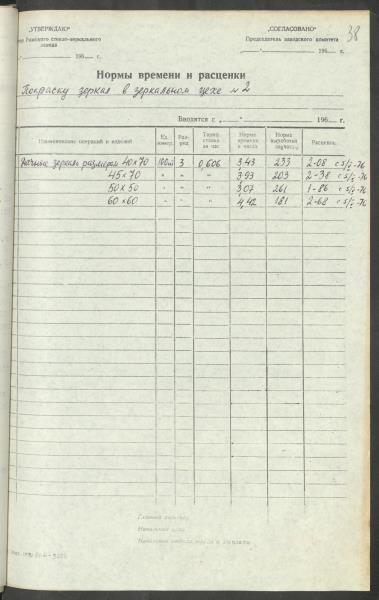 38
„УТВЕРЖДАЮ" „СОГЛАСОВАНО"
Рижского стекло-зеркального Председатель заводского комитета
завода
„ " 196 г. „ " 196 г.
Нормы времени и расценки
Покраску зеркал в зеркальном цехе № 2
Вводится с „ " 196 г.
Наименование операций и изделий Ед. измер. Раз-ряд Тариф. ставка за час Норма времени в часах Норма выработки Расценка
зеркала размером 40×70 100шт 3 0,606 3,43 233 2-08 с 5/I-76
45×70 " " " 3,93 203 2-38 с 5/I-76
50×50 " " " 3,07 261 1-86 с 5/I-76
60×60 " " " 4,42 181 2-68 с 5/I-76
Главный инженер
Начальник цеха
Начальник отдела труда и зарплаты